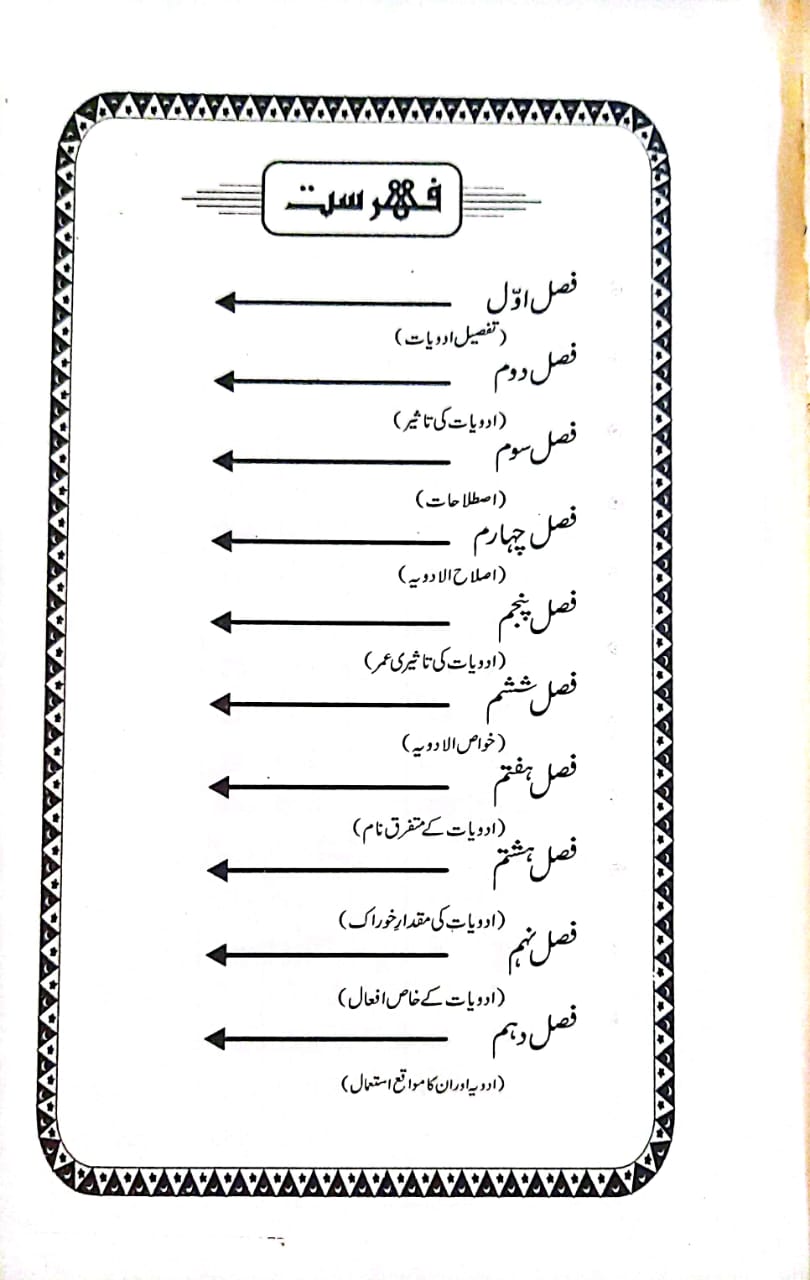 فہرست
فصل اوّل
(تفصیل ادویات)
فصل دوم
(ادویات کی تاثیر)
فصل سوم
(اصطلاحات)
فصل چہارم
(اصلاح الادویہ)
فصل پنجم
(ادویات کی تاثیری عمر)
فصل ششم
(خواص الادویہ)
فصل ہفتم
(ادویات کے متفرق نام)
فصل ہشتم
(ادویات کی مقدارِ خوراک)
فصل نہم
(ادویات کے خاص افعال)
فصل دہم
(ادویہ اور ان کا مواقع استعمال)